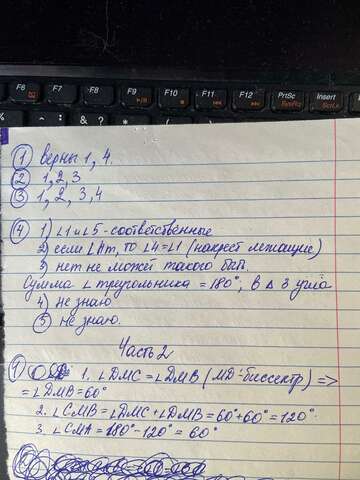 F6 F7 F8 F9 F10 F11 F12 PrtSc SysRq ScrLk
& *
① верны 1, 4.
② 1, 2, 3
③ 1, 2, 3, 4
④ 1) ∠1 и ∠5 - соответственные
2) если ∥ m, то ∠4=∠1 (накрест лежащие)
3) нет не может такого быт.
Сумма ∠ треугольника = 180°, в Δ 3 угла
4) не знаю
⑤ не знаю.
Часть 2
① 1. ∠DMC = ∠DMB (MD-биссектр) =>
= ∠DMB = 60°
2. ∠CMB = ∠DMC + ∠DMB = 60° + 60° = 120°.
3. ∠CMA = 180° - 120° = 60°